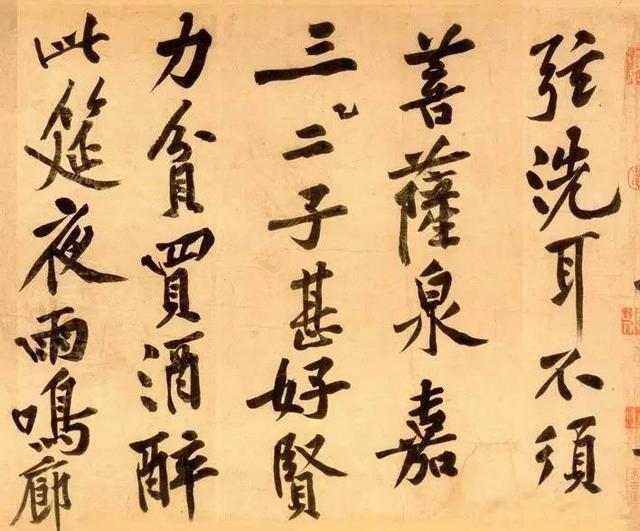 弦洗耳不須
菩薩泉嘉
三二子甚好賢
力貧買酒醉
此筵夜雨鳴廊